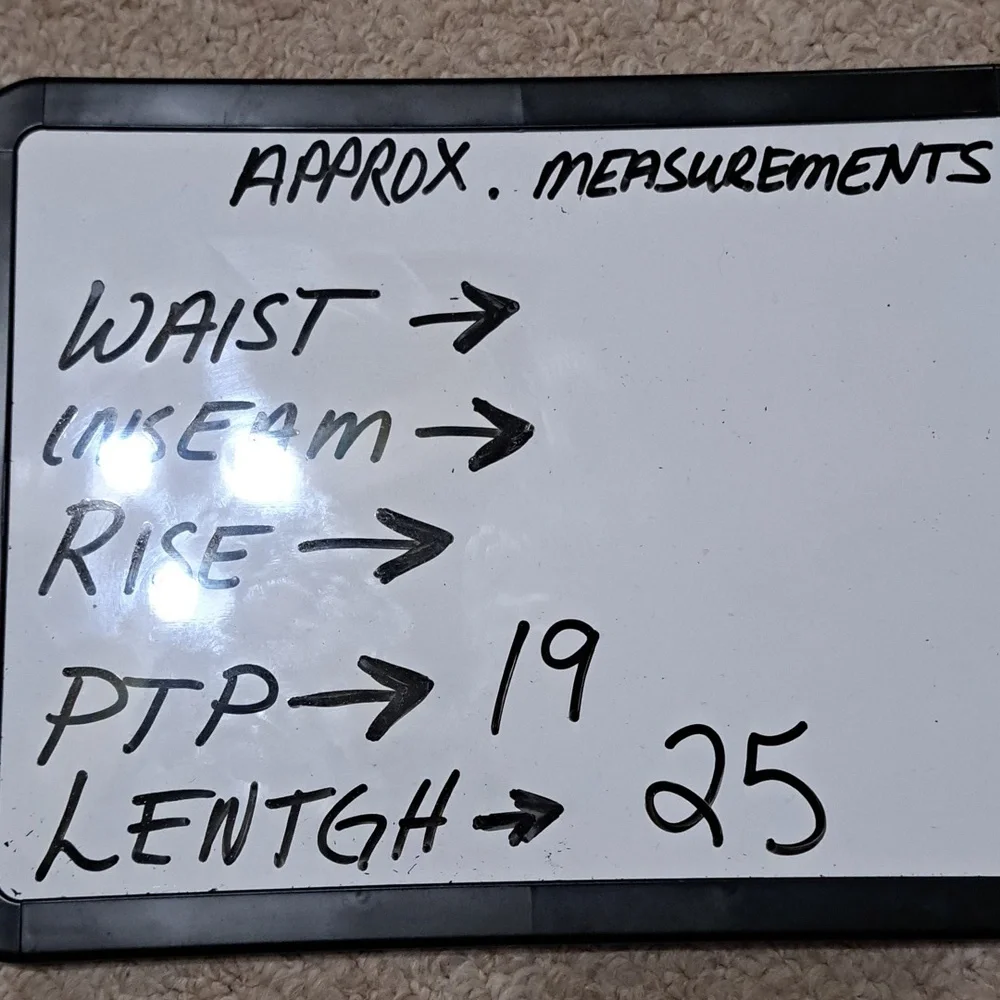 APPROX. MEASUREMENTS
WAIST →
INSEAM →
RISE →
PTP → 19
LENTGH → 25